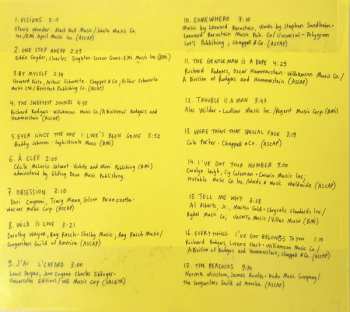 1. VISIONS 3:17
Stevie Wonder - Black Bull Music / Jobete Music Co.
Inc/EMI April Music Inc. (ASCAP)
2. ONE STEP AHEAD 2:29
Eddie Snyder, Charles Singleton-
3. BY MYSELF 2:13
Howard Dietz, Arthur Schwartz - Chappell & Co / Arthur Schwartz
4. THE SWEETEST SOUNDS 4:18
Richard Rodgers - Williamson Music Co / A Division of Rodgers and
Hammerstein (ASCAP)
5. EVER SINCE THE ONE I LOVE'S BEEN GONE 5:52
Buddy Johnson - Sophisticate Music (BMI)
6. À CLEF 2:05
Cécile McLorin Salvant - Vehdis and Mimi Publishing (BMI)
Administered by Sliding Down Music Publishing.
7. OBSESSION 3:10
Dori Caymmi, Tracy Mann, Gilson Peranzzetta -
Warner Music Corp (ASCAP)
8. WILD IS LOVE 2:21
Dorothy Wayne, Ray Rasch - Shelby Music; Ray Rasch Music/
Songwriters Guild of America (ASCAP)
9. J'AI L'CAFARD 3:00
Louis Despax, Jean Eugene Charles Eblinger -
Universelle Editions / Music Corp (SACEM)
10. SOMEWHERE 7:10
Music by Leonard Bernstein, Words by Stephen Sondheim -
Leonard Bernstein Music Pub. Co / Universal - Polygram
Int'l Publishing, Chappell & Co (ASCAP)
11. THE GENTLEMAN IS A DOPE 4:25
Richard Rodgers, Oscar Hammerstein - Williamson Music Co /
A Division of Rodgers and Hammerstein (ASCAP)
12. TROUBLE IS A MAN 3:48
Alec Wilder - Ludlow Music Inc / Regent Music Corp (BMI)
13. WERE THINE THAT SPECIAL FACE 3:19
Cole Porter - Chappell & Co. (ASCAP)
14. I'VE GOT YOUR NUMBER 5:00
Carolyn Leigh, Cy Coleman - Carwin Music Inc;
Notable Music Co Inc / Words & Music Worldwide (ASCAP)
15. TELL ME WHY 2:28
16. EVERYTHING I'VE GOT BELONGS TO YOU
Richard Rodgers, Lorenz Hart - Williamson Music Co /
A Division of Rodgers and Hammerstein, Chappell & Co. (ASCAP)
17. THE PEACOCKS 9:30
The Songwriters Guild of America (ASCAP)